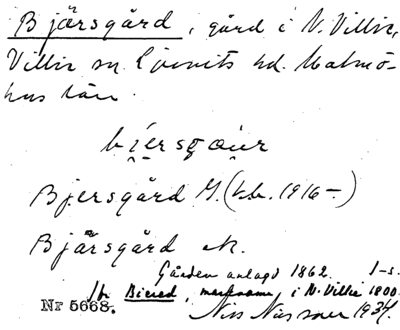 Bjärsgård, gård i N. Villie,
Villie sn. Ljunits hd. Malmö-
hus län.
Bjersgård G. (1916-)
Bjärsgård ek.
Gården anlagd 1862. 1-s.
Biered, marknamn, i N. Villie 1800.
Nr 5668. Nils Nilsson 1934.